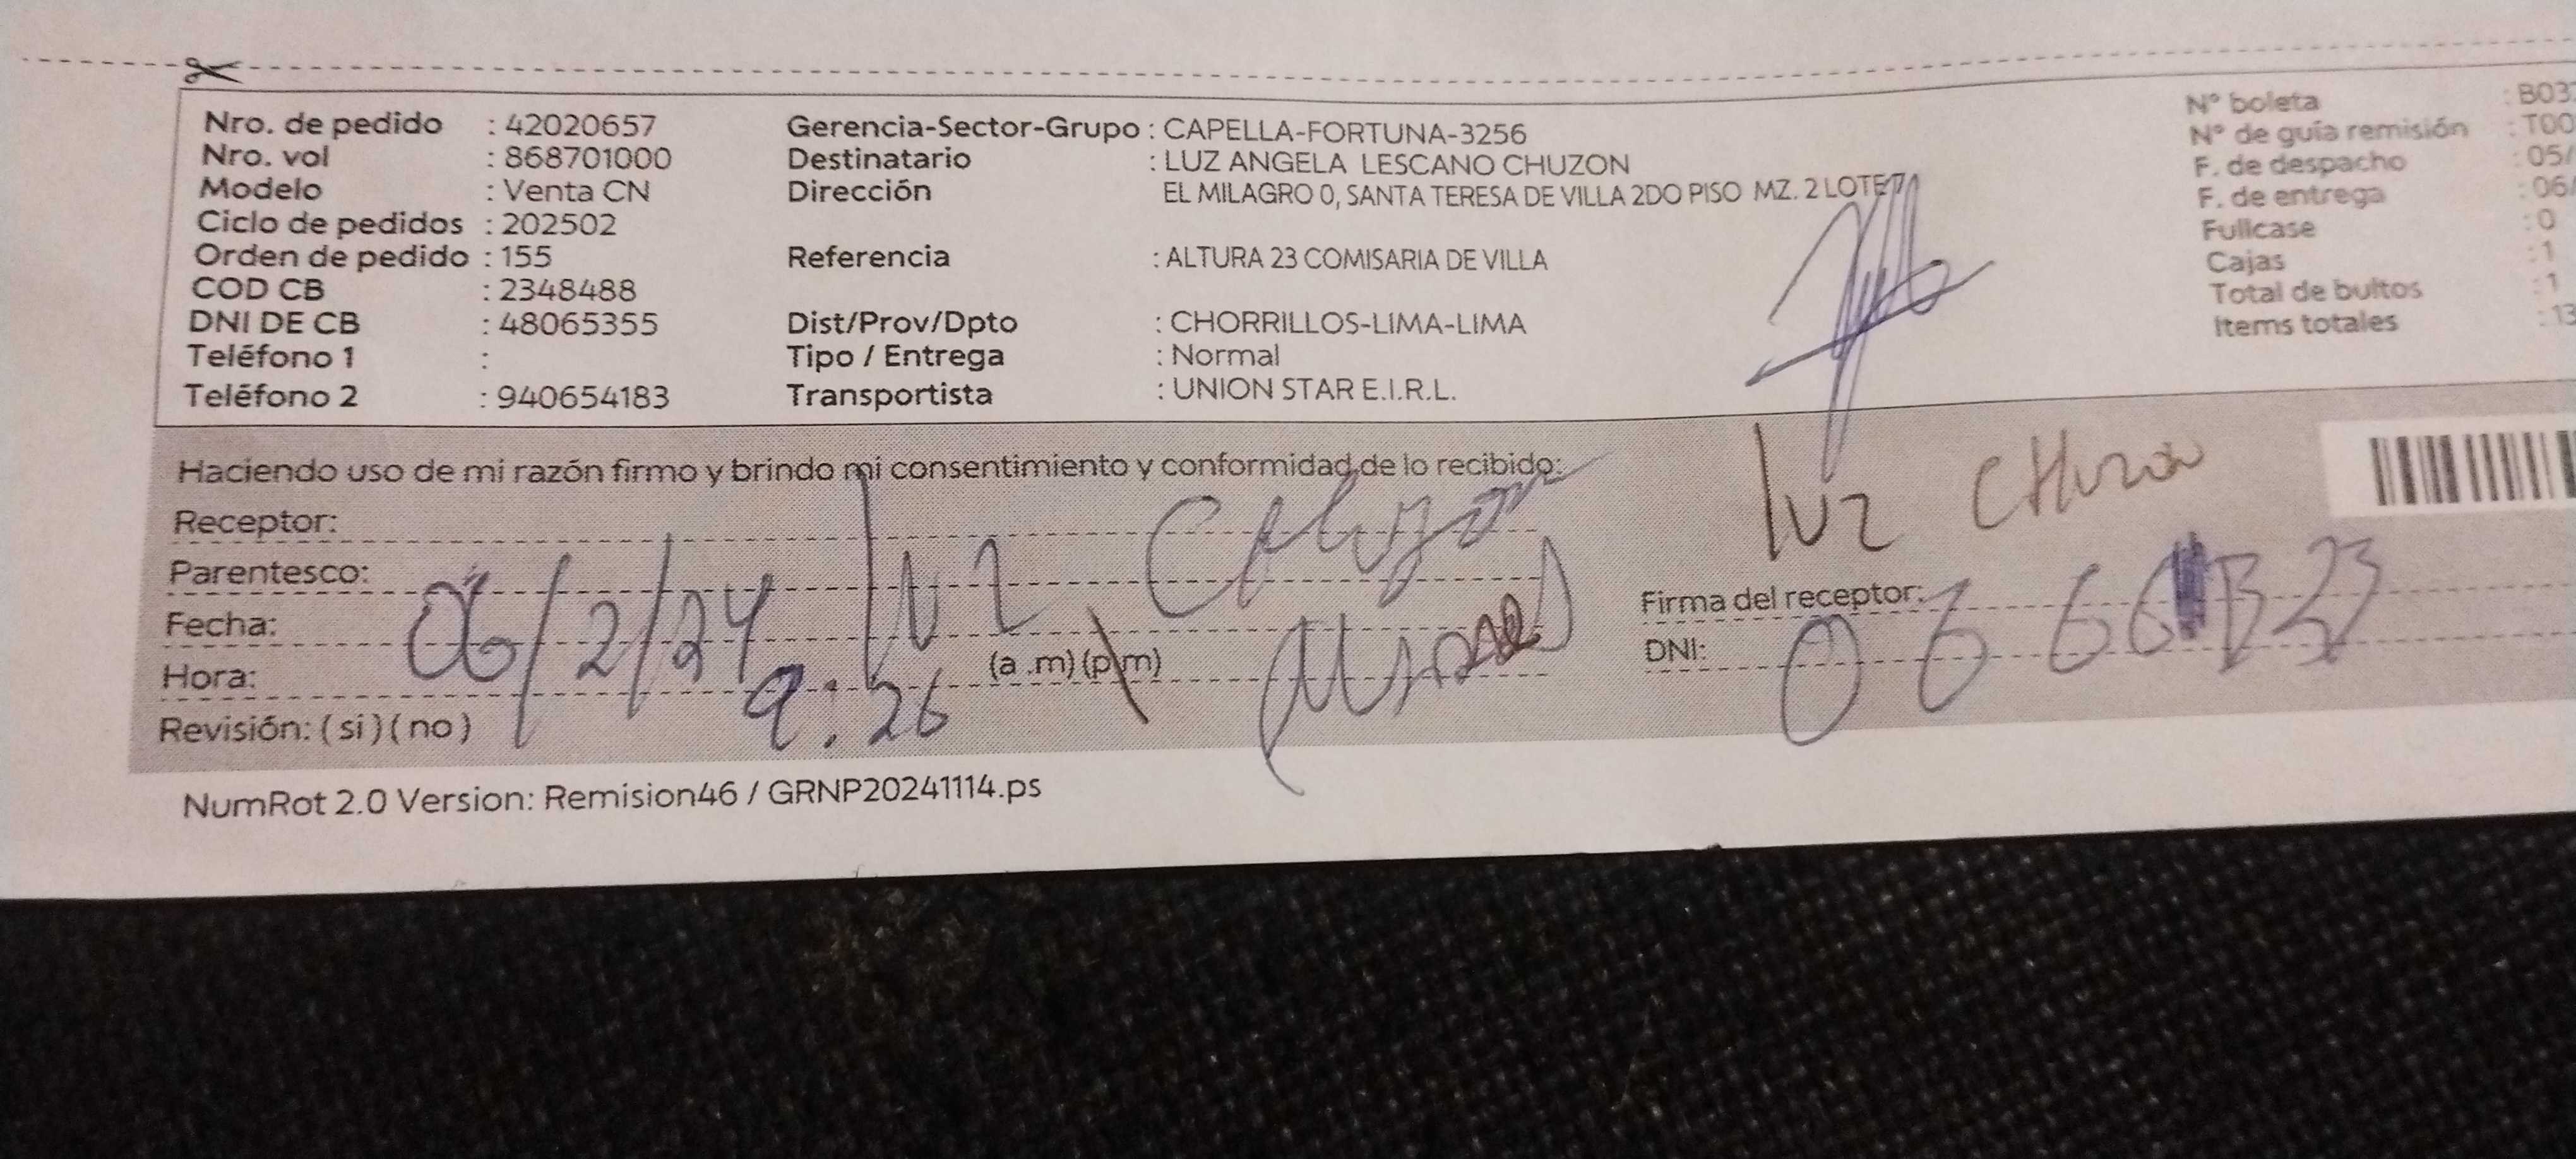 Nro. de pedido : 42020657
Nro. vol : 868701000
Modelo : Venta CN
Ciclo de pedidos : 202502
Orden de pedido : 155
COD CB : 2348488
DNI DE CB : 48065355
Teléfono 1 :
Teléfono 2 : 940654183
Gerencia-Sector-Grupo : CAPELLA-FORTUNA-3256
Destinatario : LUZ ANGELA LESCANO CHUZON
Dirección EL MILAGRO 0, SANTA TERESA DE VILLA 2DO PISO MZ. 2 LOTE
Referencia : ALTURA 23 COMISARIA DE VILLA
Dist/Prov/Dpto : CHORRILLOS-LIMA-LIMA
Tipo / Entrega : Normal
Transportista : UNION STAR E.I.R.L.
N° boleta : B03
N° de guía remisión : T00
F. de despacho : 05/
F. de entrega : 06/
Fullcase : 0
Cajas : 1
Total de bultos : 1
Items totales : 13
Haciendo uso de mi razón firmo y brindo mi consentimiento y conformidad de lo recibido:
Receptor: luz Chuzon
Parentesco:
Fecha: 06/2/24
Hora: 9:26 (a .m) (p.m)
Revisión: ( si ) ( no )
luz CHuzon
Firma del receptor:
DNI:
NumRot 2.0 Version: Remision46 / GRNP20241114.ps